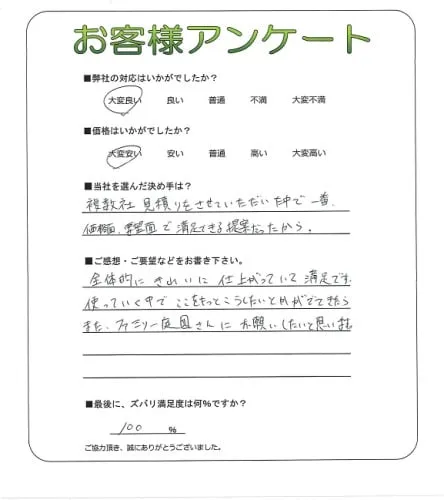 お客様アンケート
■弊社の対応はいかがでしたか?
大変良い 良い 普通 不満 大変不満
■価格はいかがでしたか?
大変安い 安い 普通 高い 大変高い
■当社を選んだ決め手は?
複数社 見積りをさせていただいた中で一番
価格面、要望面で満足できる提案だったから。
■ご感想・ご要望などをお書き下さい。
全体的にきれいに仕上がっていて満足です。
使っていく中でここをもっとこうしたいとかがでてきたら
また、ファミリー庭園さんにお願いしたいと思います
■最後に、ズバリ満足度は何%ですか?
100 %
ご協力頂き、誠にありがとうございました。